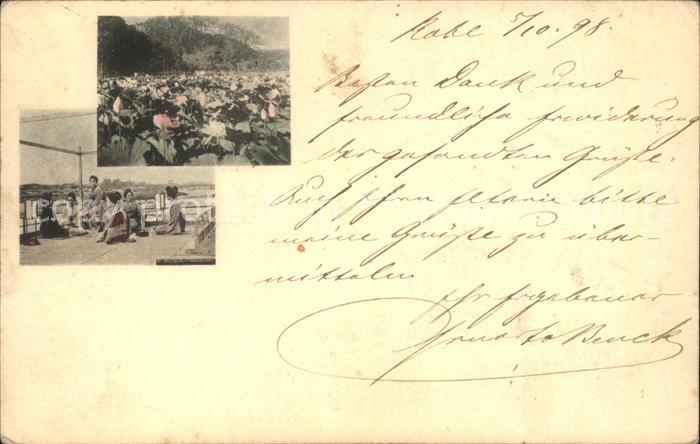 Kobe 5/10.98.
Besten Dank und
freundliche Erwiderung
der gesandten Grüße.
Auch Ihren Eltern bitte
meine Grüße zu über-
mitteln
Ihr ergebener